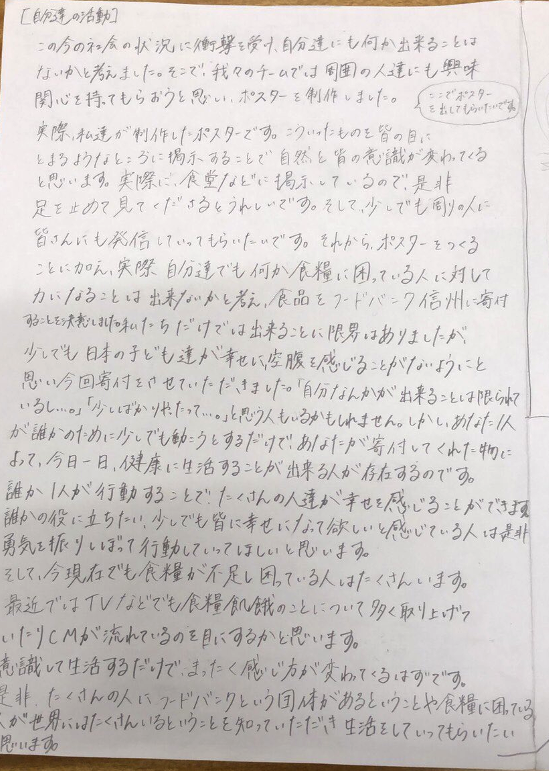 [自分達の活動]
この今の社会の状況に衝撃を受け、自分達にも何か出来ることは
ないかと考えました。そこで、我々のチームでは周囲の人達にも興味
関心を持ってもらおうと思い、ポスターを制作しました。
ここでポスター
を出してもらいたいです。
実際、私達が制作したポスターです。こういったものを皆の目に
とまるようなところに掲示することで自然と皆の意識が変わってくる
と思います。実際に、食堂などに掲示しているので、是非
足を止めて見てくださるとうれしいです。そして、少しでも周りの人に
皆さんにも発信していってもらいたいです。それから、ポスターをつくる
ことに加え、実際自分達でも何か食糧に困っている人に対して
力になることは出来ないかと考え、食品をフードバンク信州に寄付
することを決意しました。私たちだけでは出来ることに限界はありましたが、
少しでも日本の子ども達が幸せに、空腹を感じることがないようにと
思い今回寄付をさせていただきました。「自分なんかが出来ることは限られて
いるし…。」「少しばかりやったって…。」と思う人もいるかもしれません。しかし、あなた1人
が誰かのために少しでも動こうとするだけで、あなたが寄付してくれた物に
よって、今日一日、健康に生活することが出来る人が存在するのです。
誰か1人が行動することで、たくさんの人達が幸せを感じることができます。
誰かの役に立ちたい、少しでも皆に幸せになって欲しいと感じている人は是非
勇気を振りしぼって行動していってほしいと思います。
そして、今現在でも食糧が不足し困っている人はたくさんいます。
最近ではTVなどでも食糧飢餓のことについて多く取り上げっ
いたりCMが流れているのを目にするかと思います。
意識して生活するだけで、まったく感じ方が変わってくるはずです。
是非、たくさんの人にフードバンクという団体があるということや食糧に困っている
人が世界にはたくさんいるということを知っていただき生活をしていってもらいたい
思います。